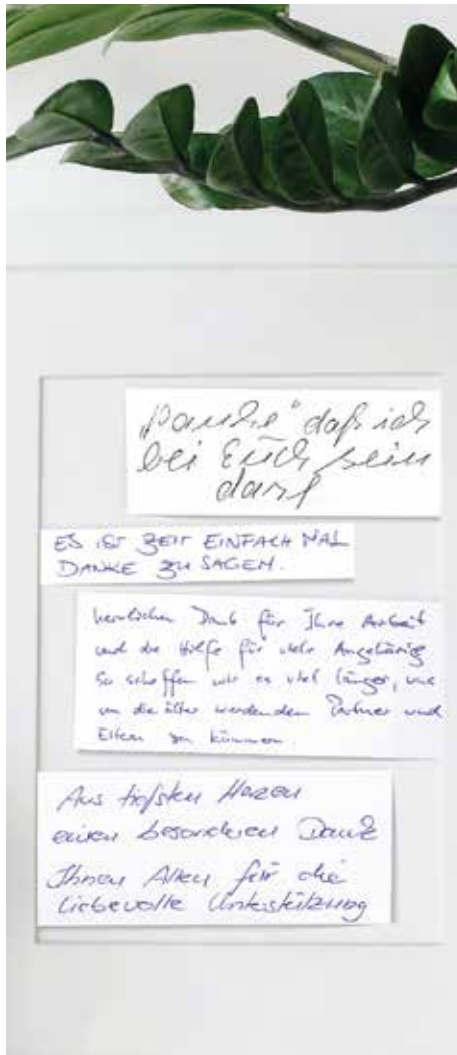 „Danke“ daß ich
bei Euch sein
darf
ES IST ZEIT EINFACH MAL
DANKE ZU SAGEN.
herzlichen Dank für Ihre Arbeit
und die Hilfe für viele Angehörige
So schaffen wir es viel länger, uns
um die älter werdenden Partner und
Eltern zu kümmern.
Aus tiefsten Herzen
einen besonderen Dank
Ihnen Allen für die
liebevolle Unterstützung